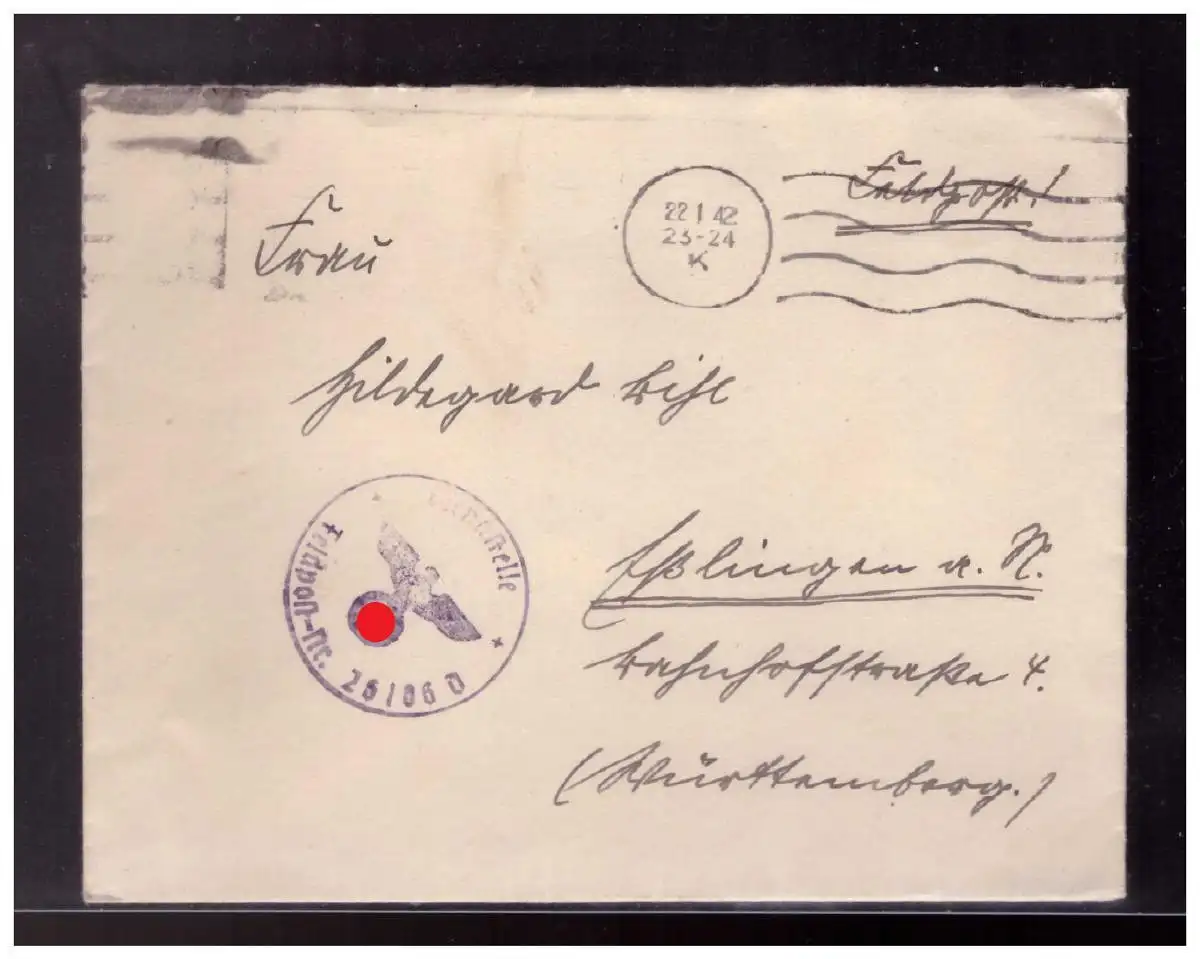 Feldpost!
22 1 42
23-24
K
Frau
Hildegard Bihl
Dienststelle
Feldpost-Nr. 26106 D
Eßlingen a. N.
Bahnhofstraße 4.
(Württemberg.)